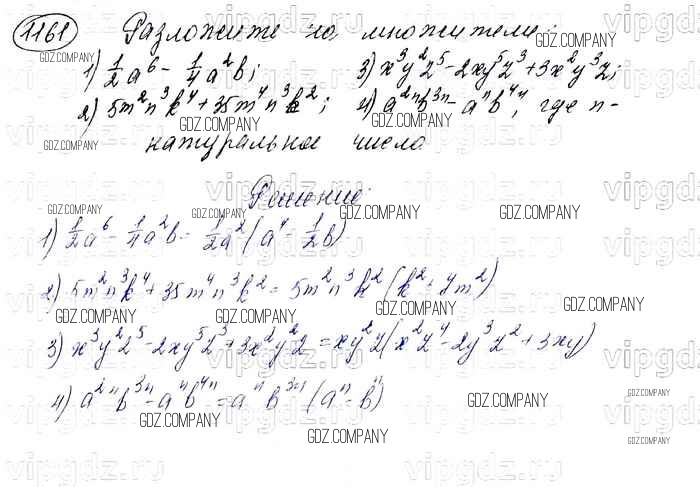 1161 Разложите на множители:
1) 1/2 a⁶ - 1/4 a²b; 3) x³y²z⁵ - 2xy⁵z³ + 3x²y³z;
2) 5m²n³k⁴ + 35m⁴n³k²; 4) a²ⁿb³ⁿ - aⁿb⁴ⁿ, где n-
натуральное число
Решение
1) 1/2 a⁶ - 1/4 a²b = 1/2 a² (a⁴ - 1/2 b)
2) 5m²n³k⁴ + 35m⁴n³k² = 5m²n³k² (k² + 7m²)
3) x³y²z⁵ - 2xy⁵z³ + 3x²y²z = xy²z (x²z⁴ - 2y³z² + 3xy)
4) a²ⁿb³ⁿ - aⁿb⁴ⁿ = aⁿb³ⁿ (aⁿ - bⁿ)